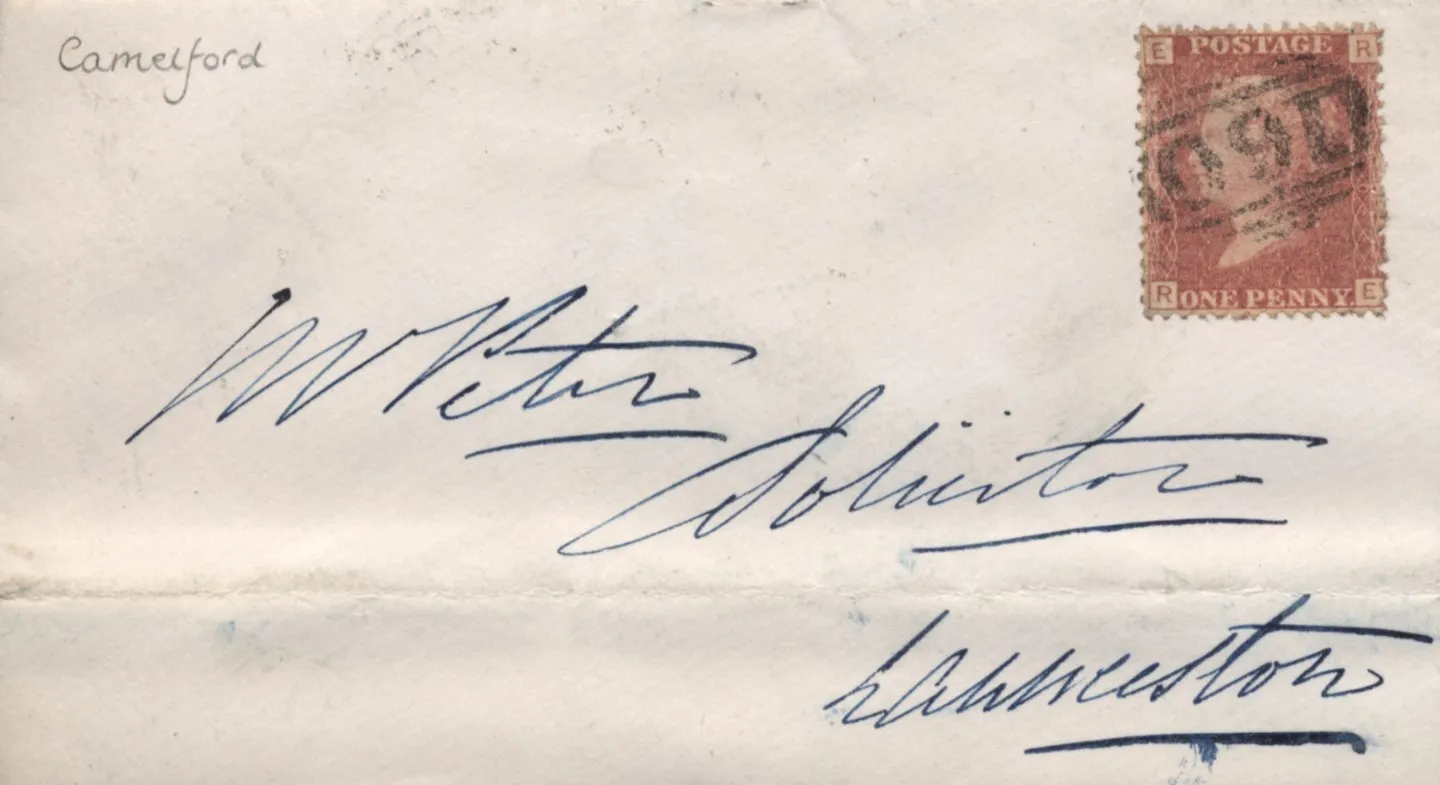 Camelford
E POSTAGE R
R ONE PENNY. E
Mr Peter
Solicitor
Launceston